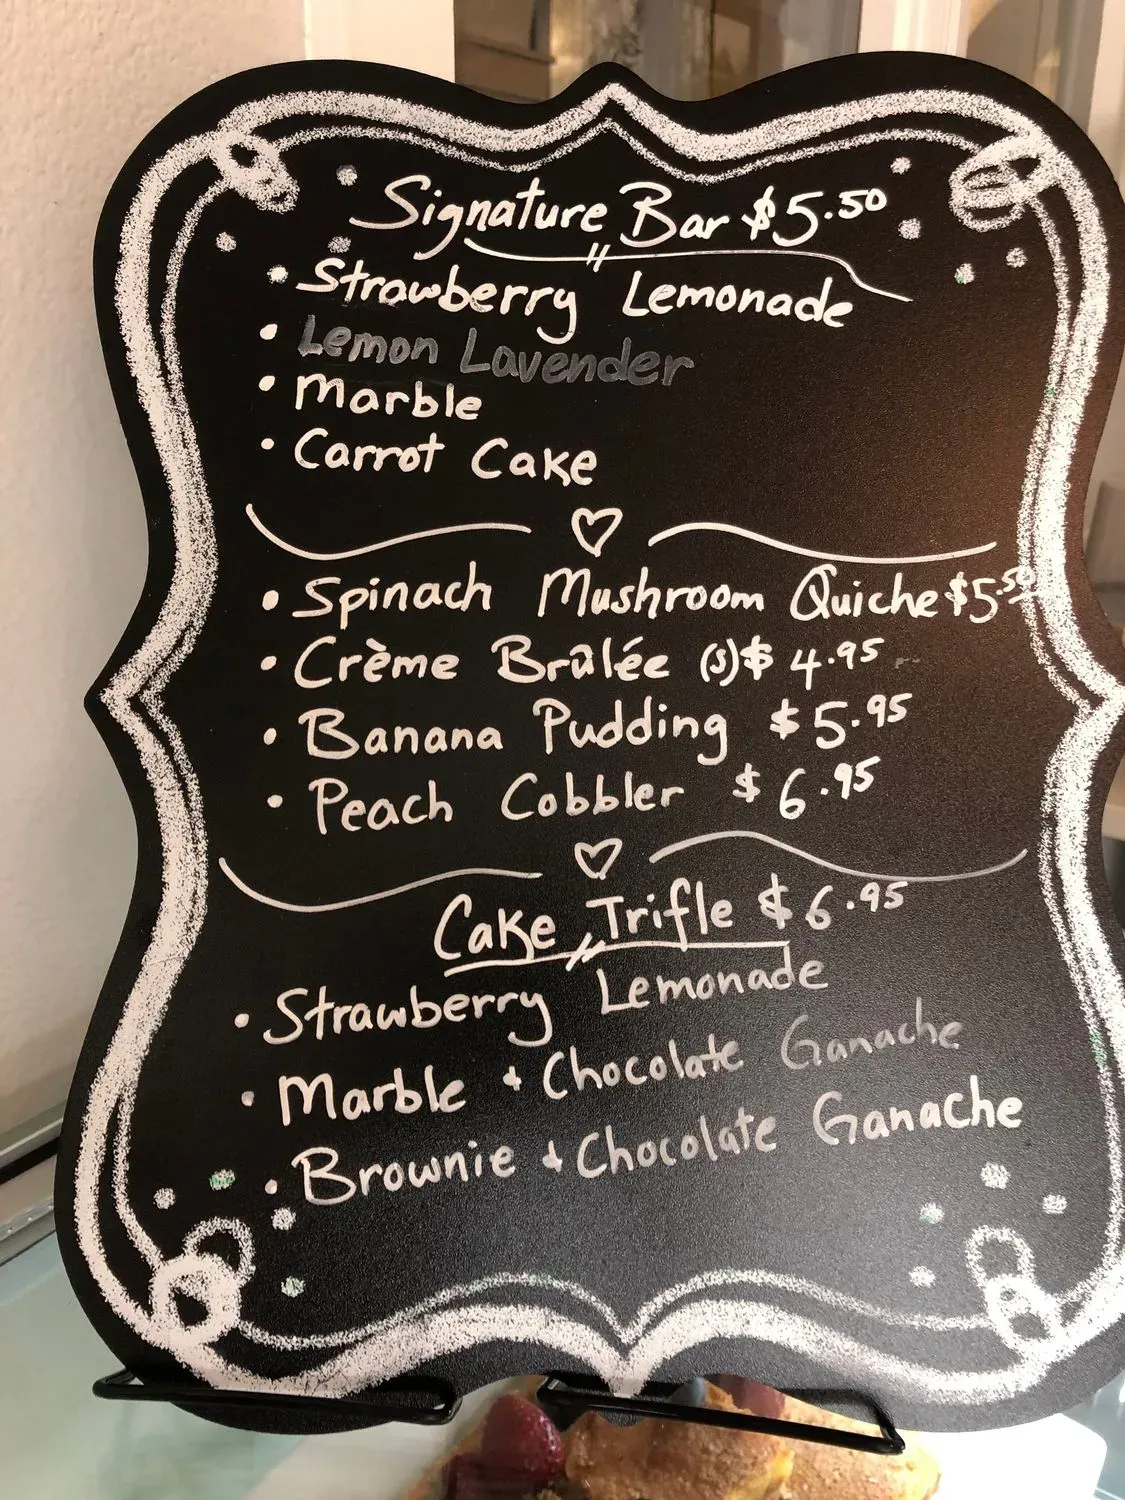 Signature Bar $5.50
• Strawberry Lemonade
• Lemon Lavender
• Marble
• Carrot Cake
• Spinach Mushroom Quiche $5.50
• Crème Brûlée (s) $4.95
• Banana Pudding $5.95
• Peach Cobbler $6.95
Cake Trifle $6.95
• Strawberry Lemonade
• Marble + Chocolate Ganache
• Brownie + Chocolate Ganache